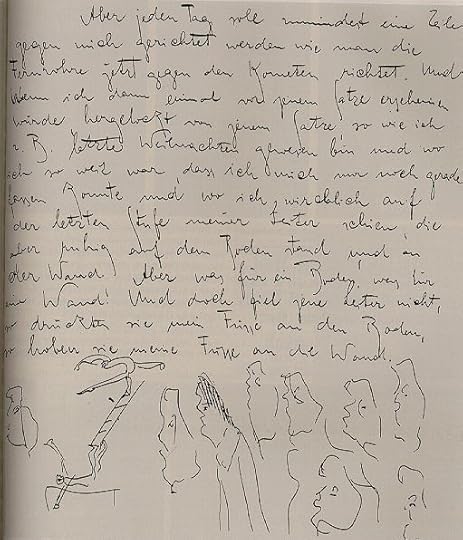 Aber jeden Tag soll zumindest eine Zeile
gegen mich gerichtet werden wie man die
Fernrohre jetzt gegen den Kometen richtet. Und
wenn ich dann einmal vor jenem Satze erscheinen
würde hergelockt von jenem Satze, so wie ich
z. B. letzte Weihnachten gewesen bin und wo
ich so weit war, dass ich mich nur noch gerade
fassen konnte und wo ich wirklich auf
der letzten Stufe meiner Leiter schien, die
aber ruhig auf dem Boden stand und an
der Wand. Aber was für ein Boden, was für
eine Wand! Und doch fiel jene Leiter nicht,
so drückten sie meine Füsse an den Boden,
so hoben sie meine Füsse an die Wand.